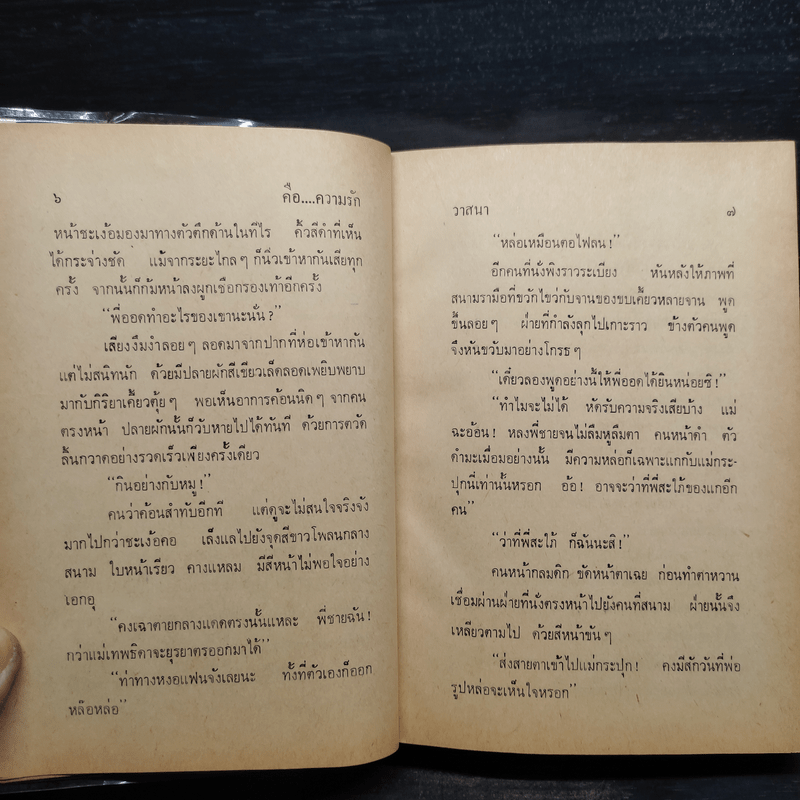 ๖
คือ....ความรัก
หน้าชะเง้อมองมาทางตัวตึกด้านในทีไร คิ้วสีดำที่เห็น
ได้กระจ่างชัด แม้จากระยะไกลๆ ก็นิ่วเข้าหากันเสียทุก
ครั้ง จากนั้นก็ก้มหน้าลงผูกเชือกรองเท้าอีกครั้ง
“พี่ออดทำอะไรของเขานะนั่น?”
เสียงงึมงำลอยๆ ลอดมาจากปากที่ห่อเข้าหากัน
แต่ไม่สนิทนัก ด้วยมีปลายผักสีเขียวเล็ดลอดเพยิบพยาบ
มากับกิริยาเคี้ยวตุ้ยๆ พอเห็นอาการค้อนนิดๆ จากคน
ตรงหน้า ปลายผักนั้นก็วับหายไปได้ทันที ด้วยการตวัด
ลิ้นกวาดอย่างรวดเร็วเพียงครั้งเดียว
“กินอย่างกับหมู!”
คนว่าค้อนสำทับอีกที แต่ดูจะไม่สนใจจริงจัง
มากไปกว่าชะเง้อคอ เล็งแลไปยังจุดสีขาวโพลนกลาง
สนาม ใบหน้าเรียว คางแหลม มีสีหน้าไม่พอใจอย่าง
เอกอุ
“คงเฉาตายกลางแดดตรงนั้นแหละ พี่ชายฉัน!
กว่าแม่เทพธิดาจะยุรยาตรออกมาได้”
“ท่าทางหงอแฟนจังเลยนะ ทั้งที่ตัวเองก็ออก
หล๊อหล่อ”
วาสนา
๗
“หล่อเหมือนตอไฟลน!”
อีกคนที่นั่งพิงราวระเบียง หันหลังให้ภาพที่
สนามรามือที่ขวักไขว่กับจานของขบเคี้ยวหลายจาน พูด
ขึ้นลอยๆ ฝ่ายที่กำลังลุกไปเกาะราว ข้างตัวคนพูด
จึงหันขวับมาอย่างโกรธๆ
“เดี๋ยวลองพูดอย่างนี้ให้พี่ออดได้ยินหน่อยซิ!”
“ทำไมจะไม่ได้ หัดรับความจริงเสียบ้าง แม่
ฉะอ้อน! หลงพี่ชายจนไม่ลืมหูลืมตา คนหน้าดำ ตัว
ดำมะเมื่อมอย่างนั้น มีความหล่อก็เฉพาะแกกับแม่กระ-
ปุกนี่เท่านั้นหรอก อ้อ! อาจจะว่าที่พี่สะใภ้ของแกอีก
คน”
“ว่าที่พี่สะใภ้ ก็ฉันนะสิ!”
คนหน้ากลมดิก ขัดหน้าตาเฉย ก่อนทำตาหวาน
เชื่อมผ่านฝ่ายที่นั่งตรงหน้าไปยังคนที่สนาม ฝ่ายนั้นจึง
เหลียวตามไป ด้วยสีหน้าขันๆ
“ส่งสายตาเข้าไปแม่กระปุก! คงมีสักวันที่พ่อ
รูปหล่อจะเห็นใจหรอก”